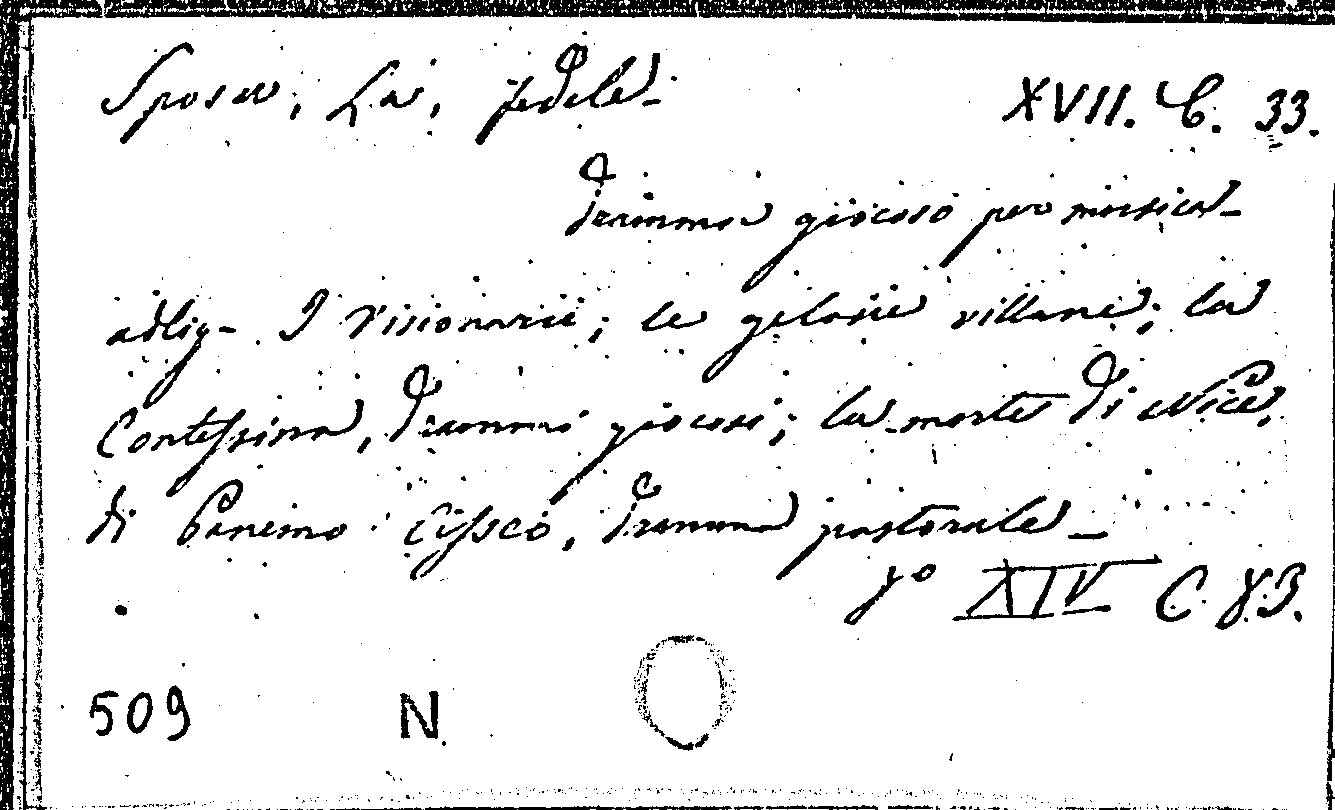 Sposa, La, fedele. XVII. C. 33.
Dramma giocoso per musica.
adlig. I Visionarii; le gelosie villane; la
Contessina, Drammi giocosi; la morte di Nice,
di Panemo Cisseo, Dramma pastorale.
XIV C 83.
509 N